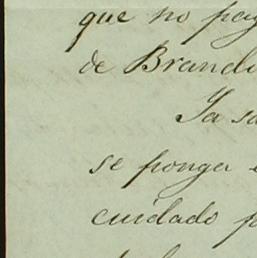 que no pag
de Brandi
Ya sa
se ponga
cuidado p